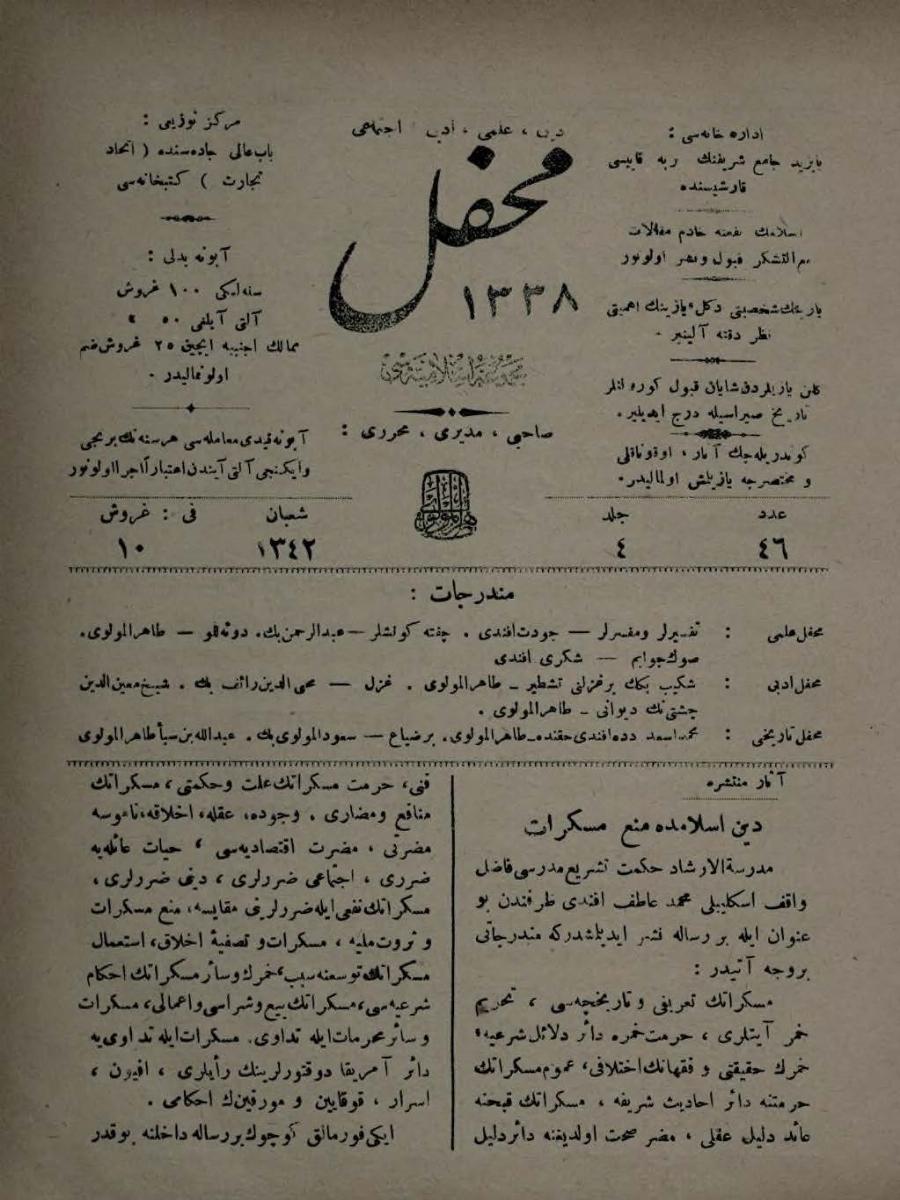 اداره خانه‌سی :
بایزید جامع شریفنك ربه قاپیسی
قارشیسنده
اسلامك نفعنه خادم مقالات
مع التشكر قبول ونشر اولونور
یازینك شخصیتی دكل، یازینك اهمیتی
نظر دقته آلینیر .
كلن یازیلردن شایان قبول كوره‌نلر
تاریخ صیراسیله درج ایدیلیر.
كوندریله‌جك آثار ، اوقوناقلی
و مختصرجه یازیلمش اولمالیدر.
دینی ، علمی ، ادبی ، اجتماعی
محفل
١٣٣٨
مجموعهٔ اسلامیه‌سی
صاحبی ، مدیری ، محرری :
طاهر المولوی
مركز توزیعی :
باب عالی جاده‌سنده ( اتحاد
تجارت ) كتبخانه‌سی
آبونه بدلی :
سنه‌لكی ١٠٠ غروش
آلتی آیلغی ٥٠ »
ممالك اجنبیه ایچین ٢٥ غروش ضم
اولونمالیدر .
آبونه قیدی معامله‌سی هر سنه‌نك برنجی
وایكنجی آلتی آیندن اعتباراً اجرا اولونور
عدد جلد شعبان فی : غروش
٤٦ ٤ ١٣٤٢ ١٠
مندرجات :
محفل علمی : تفسیرلر ومفسرلر — جودت افندی . چفته كونشلر — عبدالرحمن بك. دوئه‌للو — طاهر المولوی.
صوك جوابم — شكری افندی
محفل ادبی : شكیب بكك بر غزلنی تشطیر ــ طاهر المولوی . غزل — محی الدین رائف بك . شیخ معین الدین
چشتی‌نك دیوانی ــ طاهر المولوی .
محفل تاریخی : محمد اسعد دده افندی حقنده ــ طاهر المولوی. بر ضیاع — سعود المولوی بك . عبدالله بن سبأ طاهر المولوی
آثار منتشره
دین اسلامده منع مسكرات
مدرسة الارشاد حكمت تشریع مدرسی فاضل
واقف اسكلیبلی محمد عاطف افندی طرفندن بو
عنوان ایله بر رساله نشر ایدیلمشدركه مندرجاتی
بروجه آتیدر :
مسكراتك تعریفی و تاریخچه‌سی ، تحریم
خمر آیتلری ، حرمت خمره دائر دلائل شرعیه،
خمرك حقیقتی و فقهانك اختلافی، عموم مسكراتك
حرمتنه دائر احادیث شریفه ، مسكراتك قبحنه
عائد دلیل عقلی ، مضر صحت اولدیغنه دائر دلیل
فنی، حرمت مسكراتك علت وحكمتی ، مسكراتك
منافع ومضاری . وجوده، عقله، اخلاقه، ناموسه
مضرتی ، مضرت اقتصادیه‌سی ، حیات عائله‌یه
ضرری ، اجتماعی ضررلری ، دینی ضررلری ،
مسكراتك نفعی ایله ضررلرینی مقایسه، منع مسكرات
و ثروت ملیه ، مسكرات و تصفیهٔ اخلاق، استعمال
مسكراتك توسعنه سبب، خمرك وسائر مسكراتك احكام
شرعیه‌سی، مسكراتك بیع وشراسی واعمالی، مسكرات
وسائر محرمات ایله تداوی. مسكرات ایله تداوی‌یه
دائر آمریقا دوقتورلرینك رأیلری ، افیون ،
اسرار ، قوقایین و مورفین‌ك احكامی .
ایكی فورمه‌لق كوچوك بر رساله داخلنه بوقدر